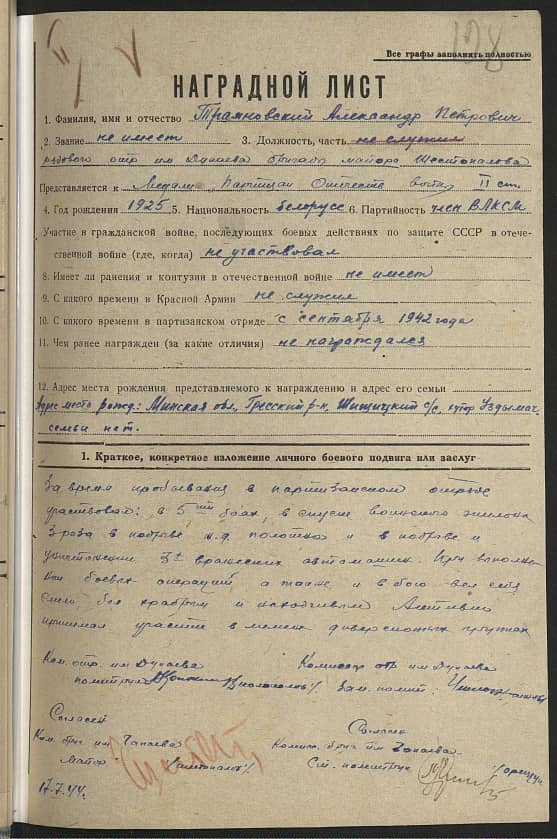 198
Все графы заполнять полностью
НАГРАДНОЙ ЛИСТ
1. Фамилия, имя и отчество Траяновский Александр Петрович
2. Звание не имеет 3. Должность, часть не служил
рядового отр. им Дунаева бригады майора Шестопалова
Представляется к Медали "Партизан Отечеств. войны" II ст.
4. Год рождения 1925 5. Национальность белорусс 6. Партийность член ВЛКСМ
Участие в гражданской войне, последующих боевых действиях по защите СССР в отече-
ственной войне (где, когда) не участвовал
8. Имеет ли ранения и контузии в отечественной войне не имеет
9. С какого времени в Красной Армии не служил
10. С какого времени в партизанском отряде с сентября 1942 года
11. Чем ранее награжден (за какие отличия) не награждался
12. Адрес места рождения представляемого к награждению и адрес его семьи
Адрес место рожд.: Минская обл, Гресский р-н, Шищицкий с/с, хутор
семьи нет.
1. Краткое, конкретное изложение личного боевого подвига или заслуг
За время пребывания в партизанском отряде
участвовал: в 5ти боях, в спуске воинского эшелона
3 раза в подрыве ж.д. полотна и в подрыве и
уничтожении 3х вражеских автомашин. При выполне-
нии боевых операций а также и в бою вел себя
смело, был храбрым и находчивым Активно
принимал участие в мелких диверсионных группах
Ком. отр. им Дунаева Комиссар отр им Дунаева
политрук Зам. полит.
Согласен Согласен
Ком. бриг им. Чапаева Комис. бриг им. Чапаева
Майор /Шестопалов/ Ст. политрук
17.7.44г.